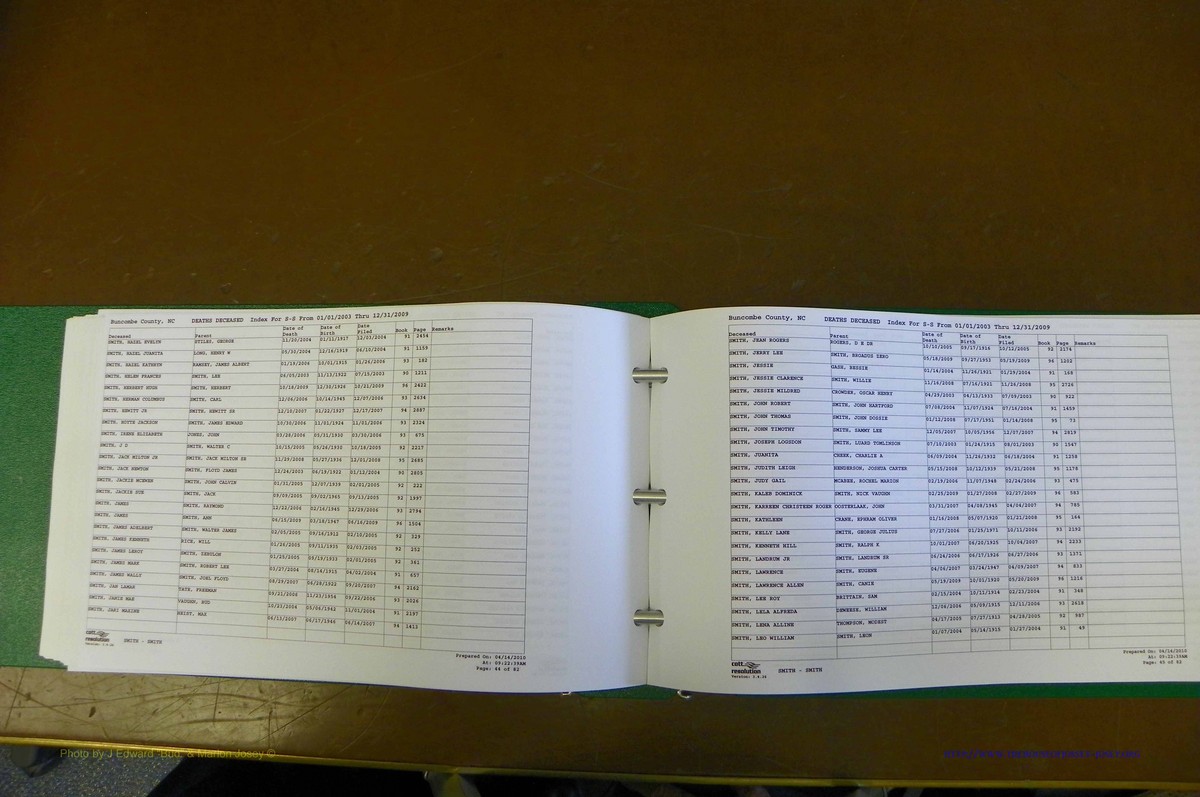 Buncombe County, NC DEATHS DECEASED Index For S-S From 01/01/2003 Thru 12/31/2009
Deceased Parent Date of Death Date of Birth Date Filed Book Page Remarks
SMITH, HAZEL EVELYN STILES, GEORGE 11/30/2004 01/13/1917 12/03/2004 91 2454
SMITH, HAZEL JUANITA LONG, HENRY W 05/30/2004 12/16/1919 06/10/2004 91 1159
SMITH, HAZEL KATHRYN RAMSEY, JAMES ALBERT 01/19/2006 10/01/1915 01/26/2006 93 182
SMITH, HELEN FRANCES SMITH, LEE 06/05/2003 11/13/1922 07/15/2003 90 1211
SMITH, HERBERT HUGH SMITH, HERBERT 10/18/2009 12/30/1926 10/21/2009 96 2422
SMITH, HERMAN COLUMBUS SMITH, CARL 12/06/2006 10/14/1945 12/07/2006 93 2634
SMITH, HEWITT JR SMITH, HEWITT SR 12/10/2007 01/22/1927 12/17/2007 94 2687
SMITH, HOYTE JACKSON SMITH, JAMES EDWARD 10/30/2006 11/01/1924 11/01/2006 93 2324
SMITH, IRENE ELIZABETH JONES, JOHN 03/28/2006 03/31/1930 03/30/2006 93 675
SMITH, J D SMITH, WALTER C 10/15/2005 10/16/2005 92 2217
SMITH, JACK MILTON JR SMITH, JACK MILTON SR 11/29/2008 05/27/1936 12/01/2008 95 2685
SMITH, JACK NEWTON SMITH, FLOYD JAMES 12/24/2003 06/19/1922 01/12/2004 90 2605
SMITH, JACKIE MCEWEN SMITH, JOHN CALVIN 01/31/2005 12/07/1939 02/01/2005 92 222
SMITH, JACKIE SUE SMITH, JACK 09/09/2005 09/02/1965 09/13/2005 92 1997
SMITH, JAMES SMITH, RAYMOND 12/22/2006 02/16/1945 12/29/2006 92 2794
SMITH, JAMES SMITH, ANN 06/15/2009 03/18/1947 06/16/2009 96 1504
SMITH, JAMES ADELBERT SMITH, WALTER JAMES 02/05/2005 09/14/1911 02/10/2005 92 329
SMITH, JAMES KENNETH RICE, WILL 01/26/2005 09/11/1935 02/03/2005 92 252
SMITH, JAMES LEROY SMITH, ZEBULON 01/25/2005 09/19/1933 02/01/2005 92 361
SMITH, JAMES MARK SMITH, ROBERT LEE 03/27/2004 08/16/1915 04/02/2004 91 657
SMITH, JAMES WALLY SMITH, JOEL FLOYD 09/19/2007 08/28/1922 09/20/2007 94 2162
SMITH, JAN LAMAR TATE, FREEMAN 09/21/2006 11/23/1954 09/22/2006 93 2026
SMITH, JANIE MAE VAUGHN, BUD 10/23/2004 05/06/1942 11/01/2004 91 2197
SMITH, JARI MAXINE HEISY, MAX 06/13/2007 06/17/1946 06/14/2007 94 1413
cott resolution
SMITH - SMITH
Prepared On: 04/14/2010
At: 09:22:39AM
Page: 44 of 82
Buncombe County, NC DEATHS DECEASED Index For S-S From 01/01/2003 Thru 12/31/2009
Deceased Parent Date of Death Date of Birth Date Filed Book Page Remarks
SMITH, JEAN ROGERS ROGERS, D E DR 10/10/2005 09/17/1916 10/12/2005 92 2174
SMITH, JERRY LEE SMITH, BROADUS ZERO 05/18/2009 09/27/1953 05/19/2009 96 1202
SMITH, JESSIE GASH, BESSIE 01/16/2004 11/26/1921 01/29/2004 91 168
SMITH, JESSIE CLARENCE SMITH, WILLIE 11/16/2008 07/16/1921 11/26/2008 95 2726
SMITH, JESSIE MILDRED CROWDER, OSCAR HENRY 04/29/2003 04/13/1933 07/09/2003 90 922
SMITH, JOHN ROBERT SMITH, JOHN HARTFORD 07/08/2004 11/07/1924 07/16/2004 91 1459
SMITH, JOHN THOMAS SMITH, JOHN DOSSIE 01/12/2008 07/17/1951 01/14/2008 95 73
SMITH, JOHN TIMOTHY SMITH, SAMMY LEE 12/05/2007 10/05/1956 12/07/2007 94 2619
SMITH, JOSEPH LOGSDON SMITH, LUARD TOMLINSON 07/10/2003 01/26/1915 08/01/2003 90 1547
SMITH, JUANITA CHEEK, CHARLIE A 06/09/2004 11/26/1932 06/18/2004 91 1258
SMITH, JUDITH LEIGH HENDERSON, JOSHUA CARTER 05/15/2008 10/12/1939 05/21/2008 95 1178
SMITH, JUDY GAIL MCABEE, ROCHEL MARION 02/19/2006 11/07/1948 02/24/2006 93 475
SMITH, KALEB DOMINICK SMITH, NICK VAUGHN 02/25/2009 01/27/2008 02/27/2009 96 582
SMITH, KARREEN CHRISTEEN ROGER OOSTERLAAK, JOHN 03/31/2007 04/08/1945 04/04/2007 94 785
SMITH, KATHLEEN CRANE, EPHRAM OLIVER 01/16/2008 05/07/1920 01/21/2008 95 164
SMITH, KELLY LANE SMITH, GEORGE JULIUS 07/27/2006 01/25/1971 10/11/2006 93 2192
SMITH, KENNETH HILL SMITH, RALPH K 10/01/2007 06/20/1925 10/04/2007 94 2233
SMITH, LANDRUM JR SMITH, LANDRUM SR 06/24/2006 06/17/1926 06/27/2006 93 1371
SMITH, LAWRENCE SMITH, EUGENE 04/06/2007 03/24/1947 04/09/2007 94 832
SMITH, LAWRENCE ALLEN SMITH, CANIE 05/19/2009 10/01/1920 05/20/2009 96 1216
SMITH, LEE ROY BRITTAIN, SAM 02/15/2004 10/11/1914 02/23/2004 91 348
SMITH, LELA ALFREDA DEWEESE, WILLIAM 12/06/2006 09/09/1915 12/11/2006 93 2618
SMITH, LENA ALLINE THOMPSON, MODEST 04/17/2005 07/27/1913 04/28/2005 92 987
SMITH, LEO WILLIAM SMITH, LEON 01/07/2004 05/14/1919 01/27/2004 91 49
cott resolution
SMITH - SMITH
Prepared On: 04/14/2010
At: 09:22:39AM
Page: 45 of 82
Photo by J Edward "Bud" & Marion Josey ©